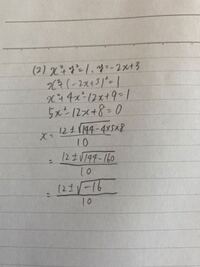 (2) x²+y²=1, y=-2x+3
x²+(-2x+3)²=1
x²+4x²-12x+9=1
5x²-12x+8=0
x=(12±√(144-4×5×8))/10
=(12±√(144-160))/10
=(12±√(-16))/10